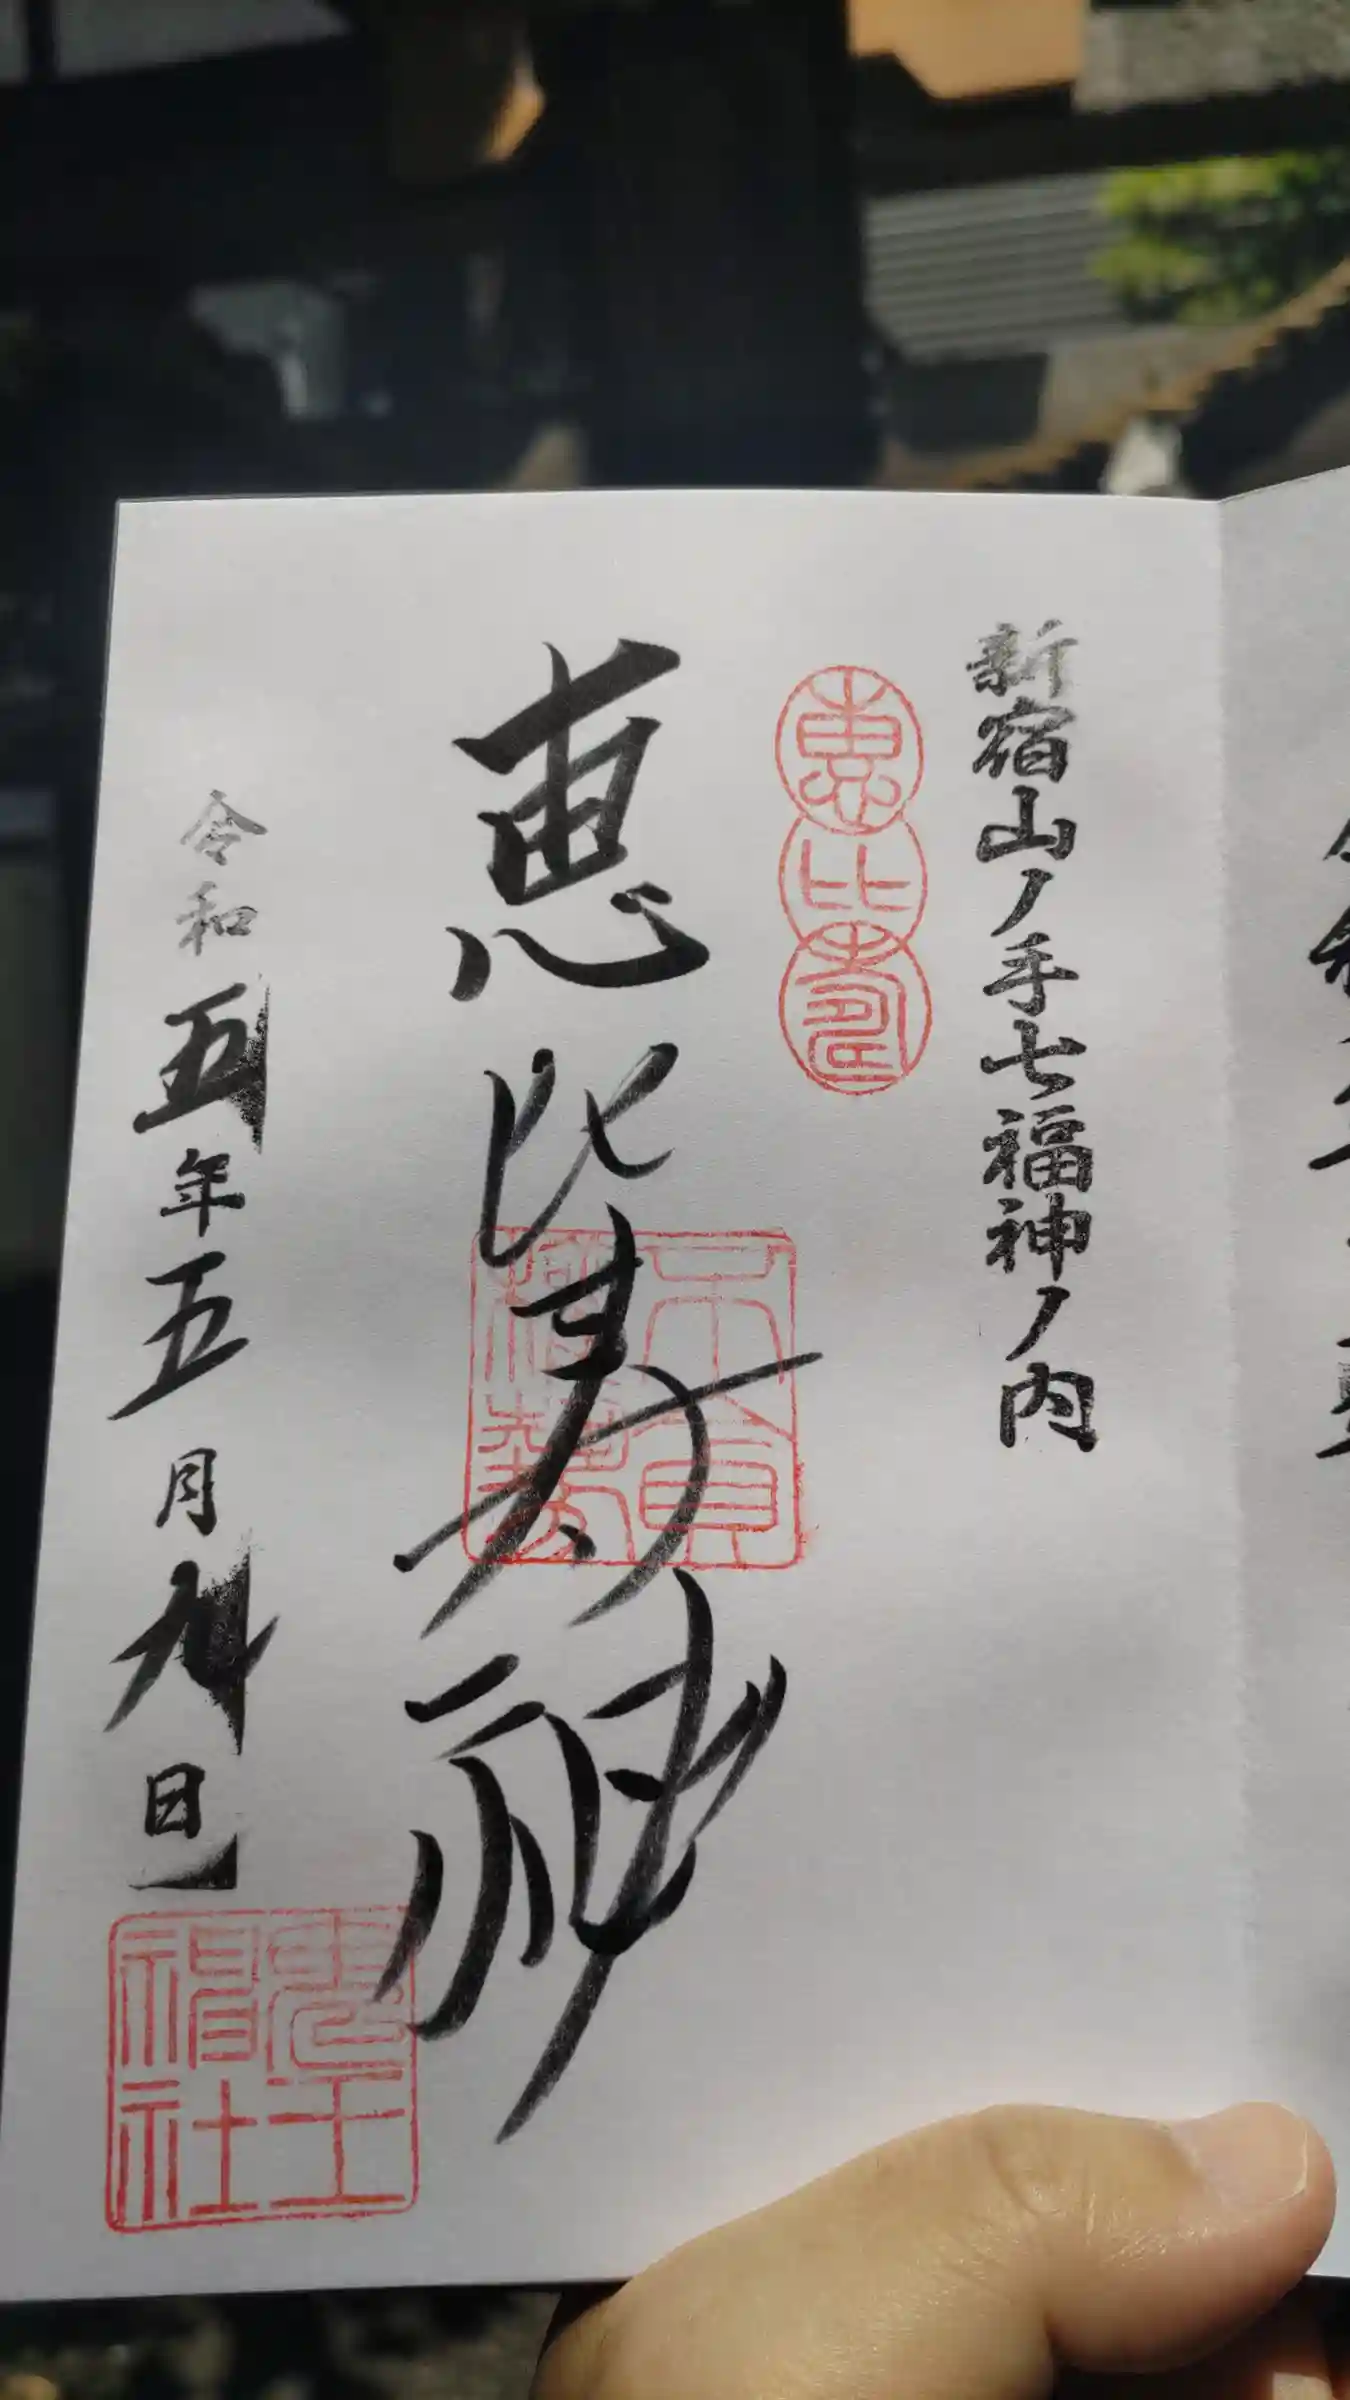 新宿山ノ手七福神ノ内
恵比寿
恵比寿神
令和五年五月九日
鬼王
神社